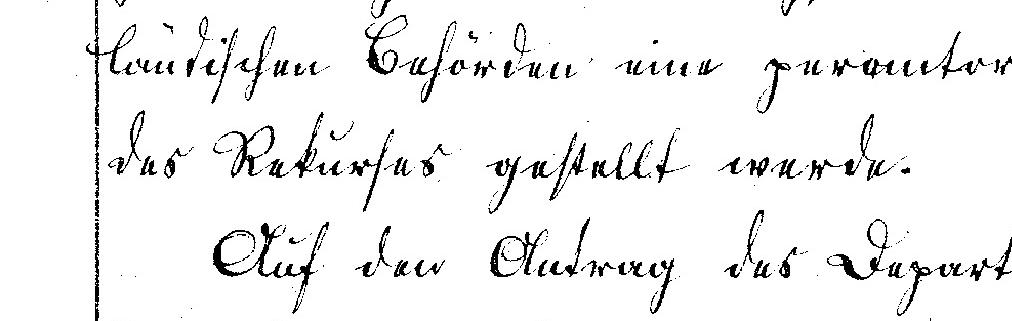 ländischen Behörden eine peremtor
des Rekurses gestellt werde.
Auf den Antrag des Depart